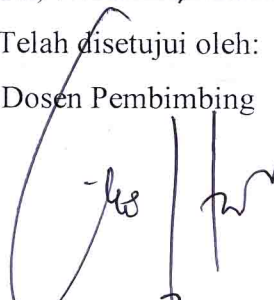 Telah disetujui oleh:
Dosen Pembimbing